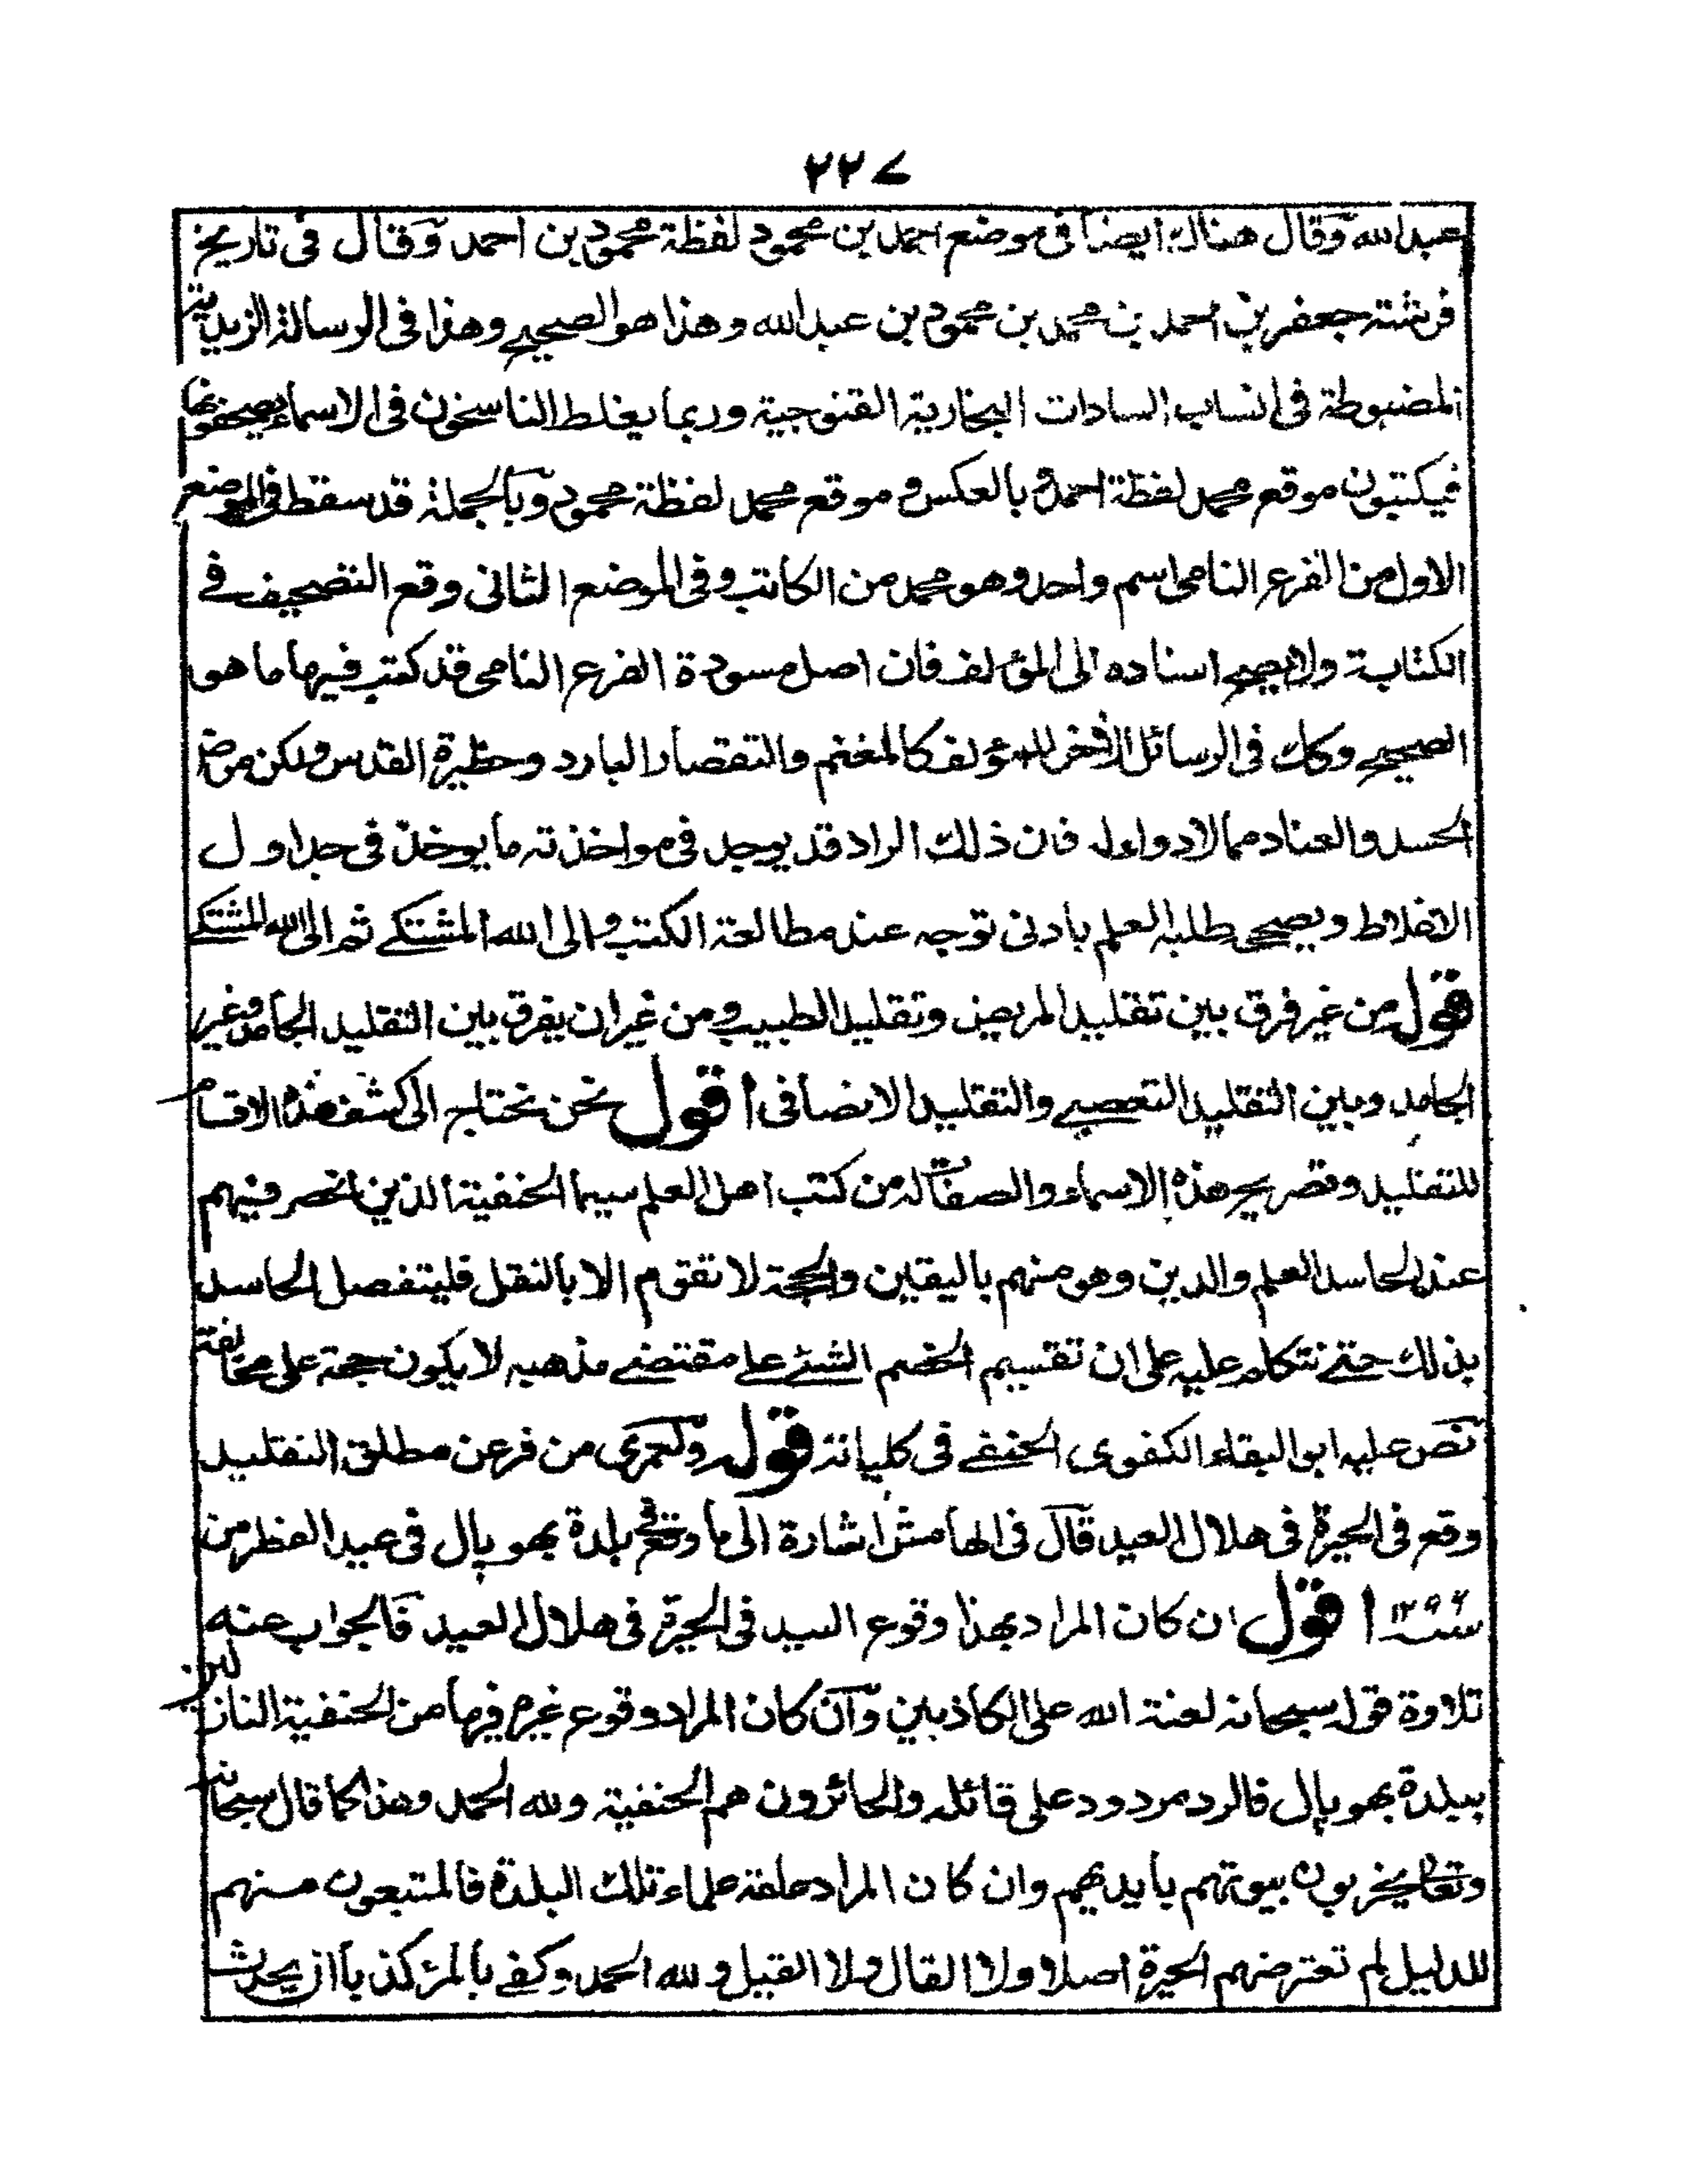 ٢٢٧
عبدالله وقال هناك ايضا فى موضع احمد بن محمود لفظة محمود بن احمد وقال فى تاريخ
فرشته جعفر بن احمد بن محمد بن محمود بن عبدالله وهذا هو الصحيح وهذا فى الرسالة الزيدية
المضبوطة فى انساب السادات البخارية القنوجية وربما يغلط الناسخون فى الاسماء يصحفونها
فيكتبون موقع محمد لفظة احمد و بالعكس و موقع محمد لفظة محمود وبالجملة قد سقط فى الموضع
الاول من الفرع النامى اسم واحد وهو محمد من الكاتب وفى الموضع الثانى وقع التصحيف فے
الكتابة ولا يصح اسناده الى المؤلف فان اصل مسودة الفرع النامى قد كتب فيها ما هو
الصحيح وكك فى الرسائل الاخر للمؤلف كالمغنم والتقصار البارد وحظيرة القدس ولكن مرض
الحسد والعناد مما لا دواء له فان ذلك الراد قد يوجد فى مواخذته ما يوخذ فى جداول
الاغلاط ويصححى طلبة العلم بادنى توجه عند مطالعة الكتب والى الله المشتكے ثم الى الله المشتكے
قوله من غير فرق بين تقليد المريض وتقليد الطبيب ومن غير ان يفرق بين التقليد الجامد وغير
الجامد وبين التقليد التعصبے والتقليد الانصافى اقول نحن نحتاج الى كشف هذه الاقسام
للتقليد وتصريح هذه الاسماء والصفات له من كتب اهل العلم سيما الحنفية الذين انحصر فيهم
عند الحاسد العلم والدين وهو منهم باليقين والحجة لا تقوم الا بالنقل فليتفضل الحاسد
بذلك حتے نتكلم عليه على ان تقسيم الخصم الشئ علے مقتضے مذهبه لا يكون حجة على مخالفته
نص عليه ابو البقاء الكفوى الحنفے فى كلياته قوله ولعمرى من فر عن مطلق التقليد
وقع فى الحيرة فى هلال العيد قال فى الهامش اشارة الى ما وقع ببلدة بهوپال فى عيد الفطر من
سنة ١٢٩٤ اقول ان كان المراد بهذا وقوع السيد فى الحيرة فى هلال العيد فالجواب عنه
تلاوة قوله سبحانه لعنة الله على الكاذبين وان كان المراد وقوع غيره فيها من الحنفية النازلين
ببلدة بهوپال فالرد مردود على قائله والحائرون هم الحنفية ولله الحمد وهذا كما قال سبحانه
وتعالى يخربون بيوتهم بايديهم وان كان المراد علماء تلك البلدة فالمتبعون منهم
للدليل لم تعترضهم الحيرة اصلا ولا القال ولا القيل ولله الحمد وكفے بالمرء كذبا ان يحدث